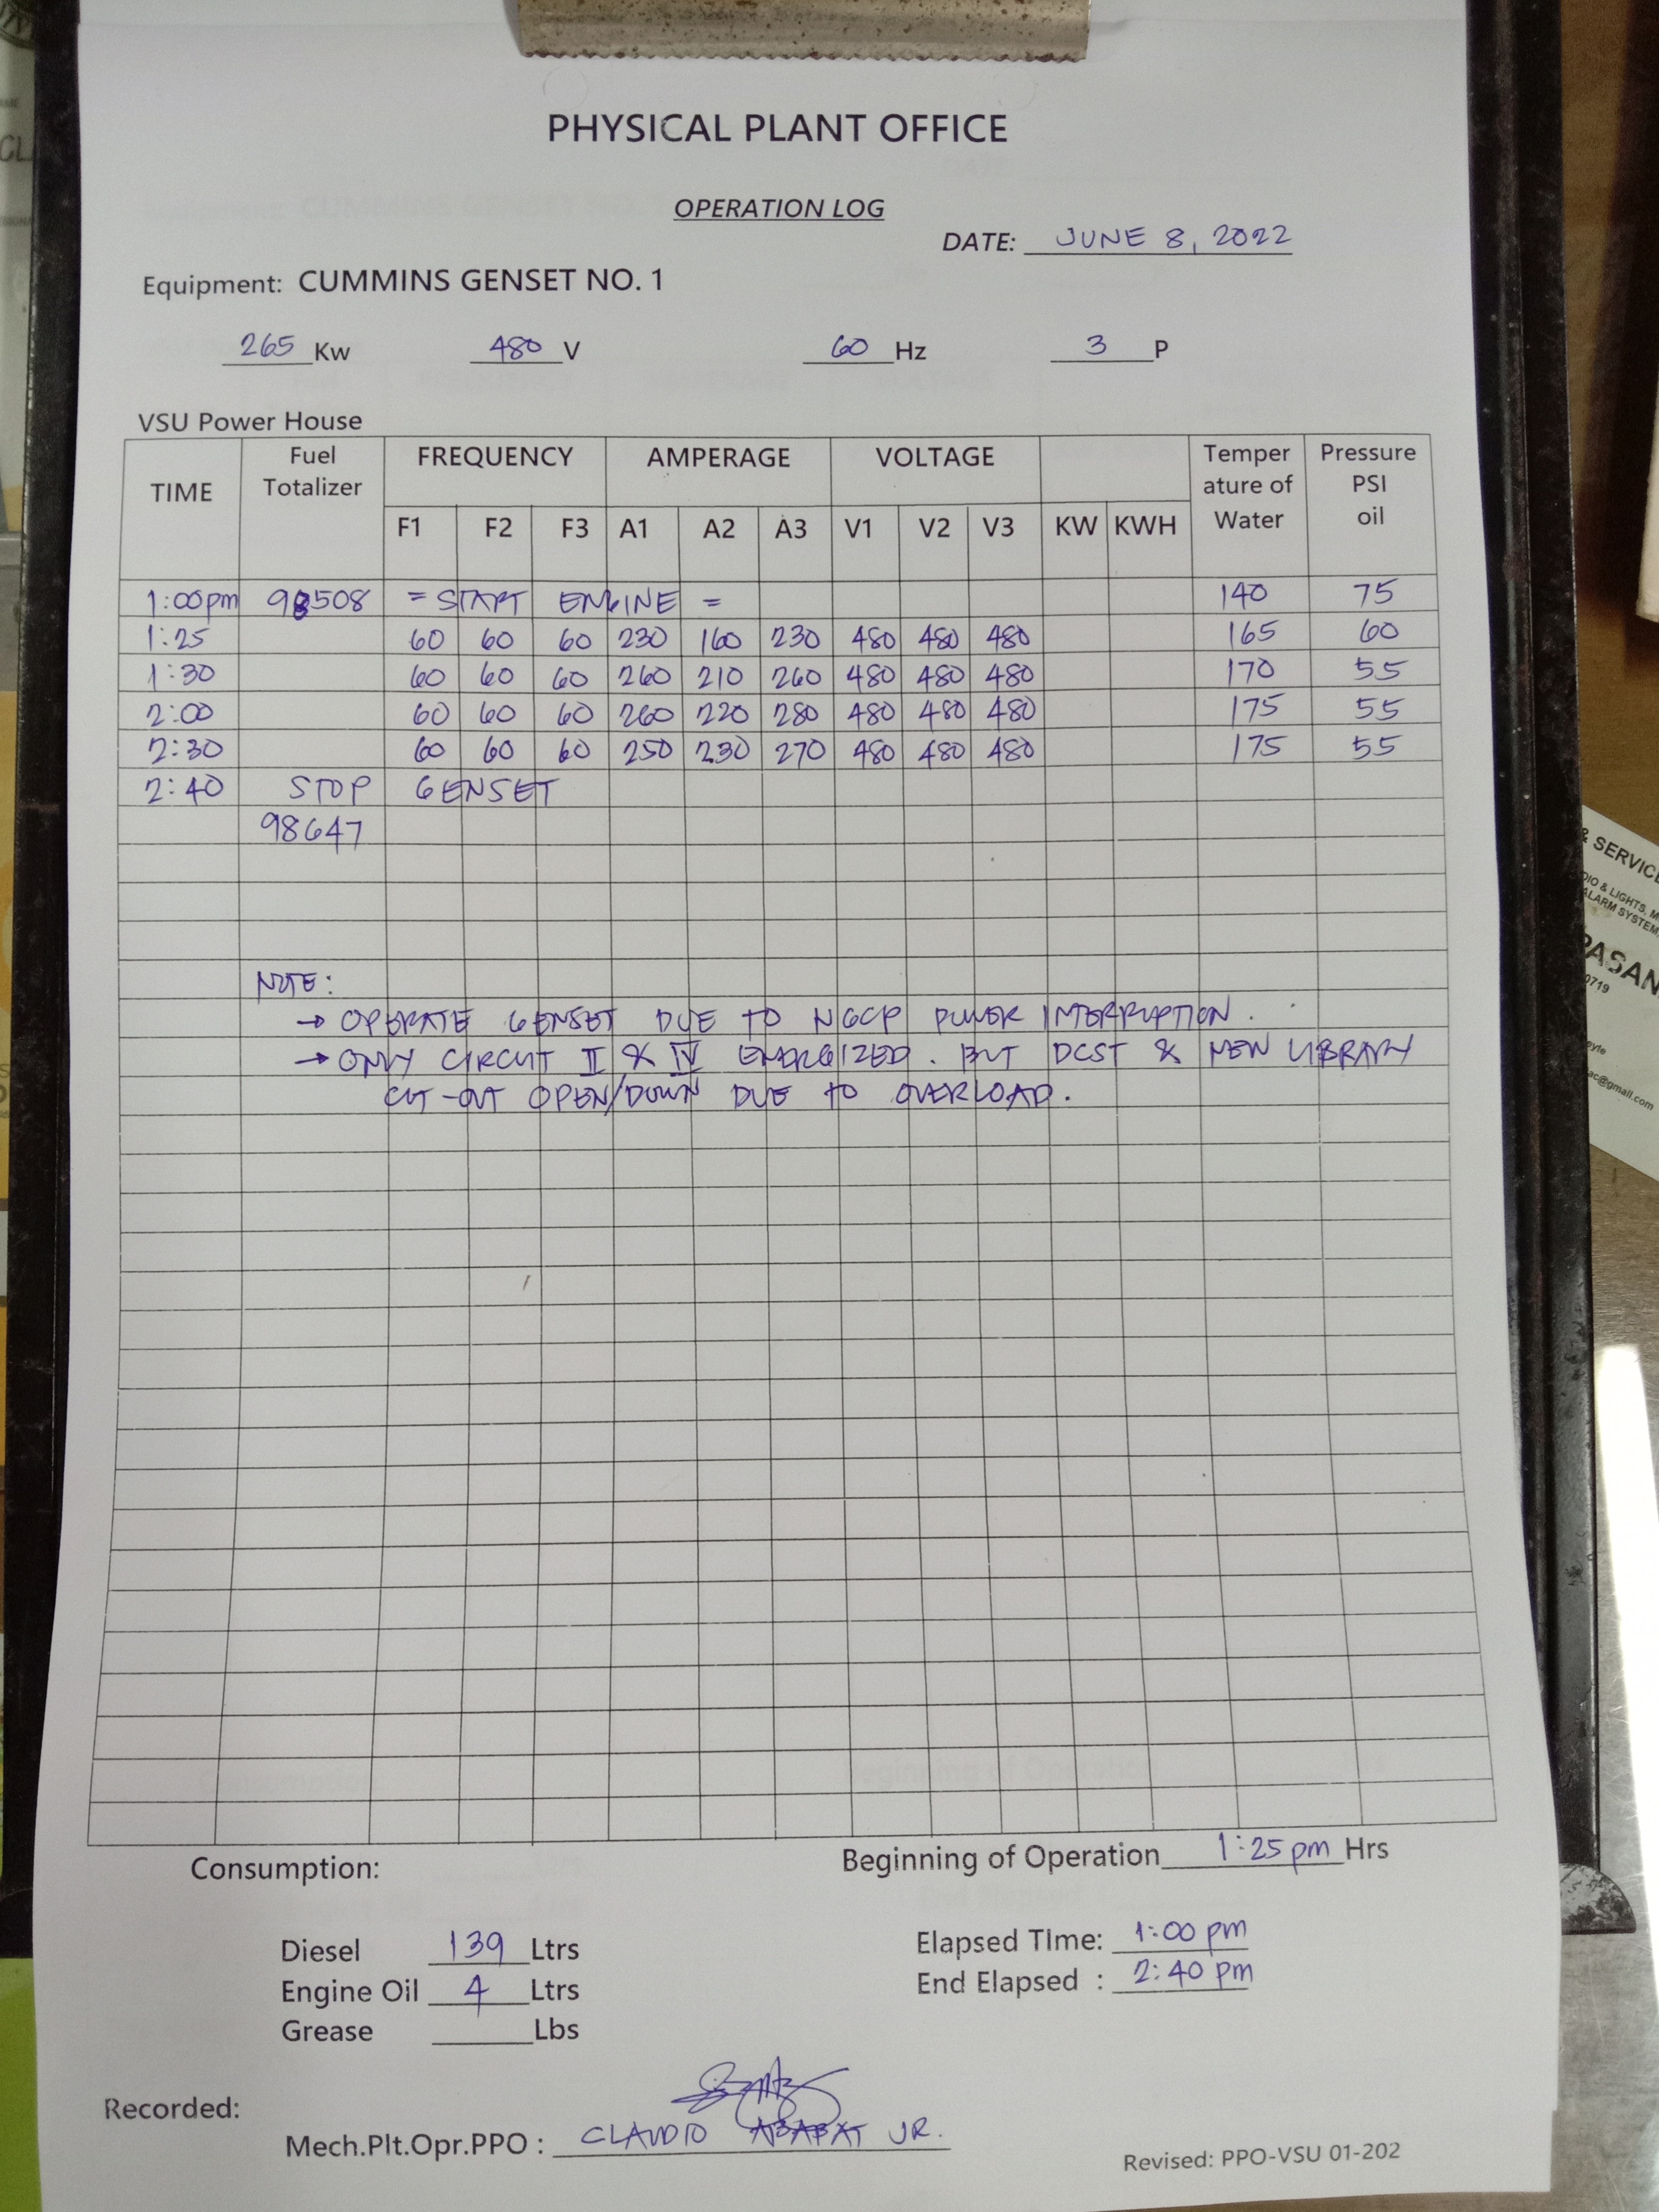 PHYSICAL PLANT OFFICE
OPERATION LOG
DATE: JUNE 8, 2022
Equipment: CUMMINS GENSET NO. 1
265 Kw 480 V 60 Hz 3 P
VSU Power House
TIME Fuel Totalizer FREQUENCY AMPERAGE VOLTAGE Temper ature of Water Pressure PSI oil
F1 F2 F3 A1 A2 A3 V1 V2 V3 KW KWH
1:00pm 98508 = START ENGINE = 140 75
1:25 60 60 60 230 160 230 480 480 480 165 60
1:30 60 60 60 260 210 260 480 480 480 170 55
2:00 60 60 60 260 220 280 480 480 480 175 55
2:30 60 60 60 250 230 270 480 480 480 175 55
2:40 STOP GENSET
98647
NOTE:
→ OPERATE GENSET DUE TO NGCP POWER INTERRUPTION.
→ ONLY CIRCUT II & IV ENERGIZED. BUT DCST & NEW LIBRARY
CUT-OUT OPEN/DOWN DUE TO OVERLOAD.
Consumption: Beginning of Operation 1:25 pm Hrs
Diesel 139 Ltrs Elapsed TIme: 1:00 pm
Engine Oil 4 Ltrs End Elapsed : 2:40 pm
Grease Lbs
Recorded:
Mech.Plt.Opr.PPO : CLAUDIO JR.
Revised: PPO-VSU 01-202
& SERVICE
ALARM SYSTEM
PASAN
0719
ac@gmail.com